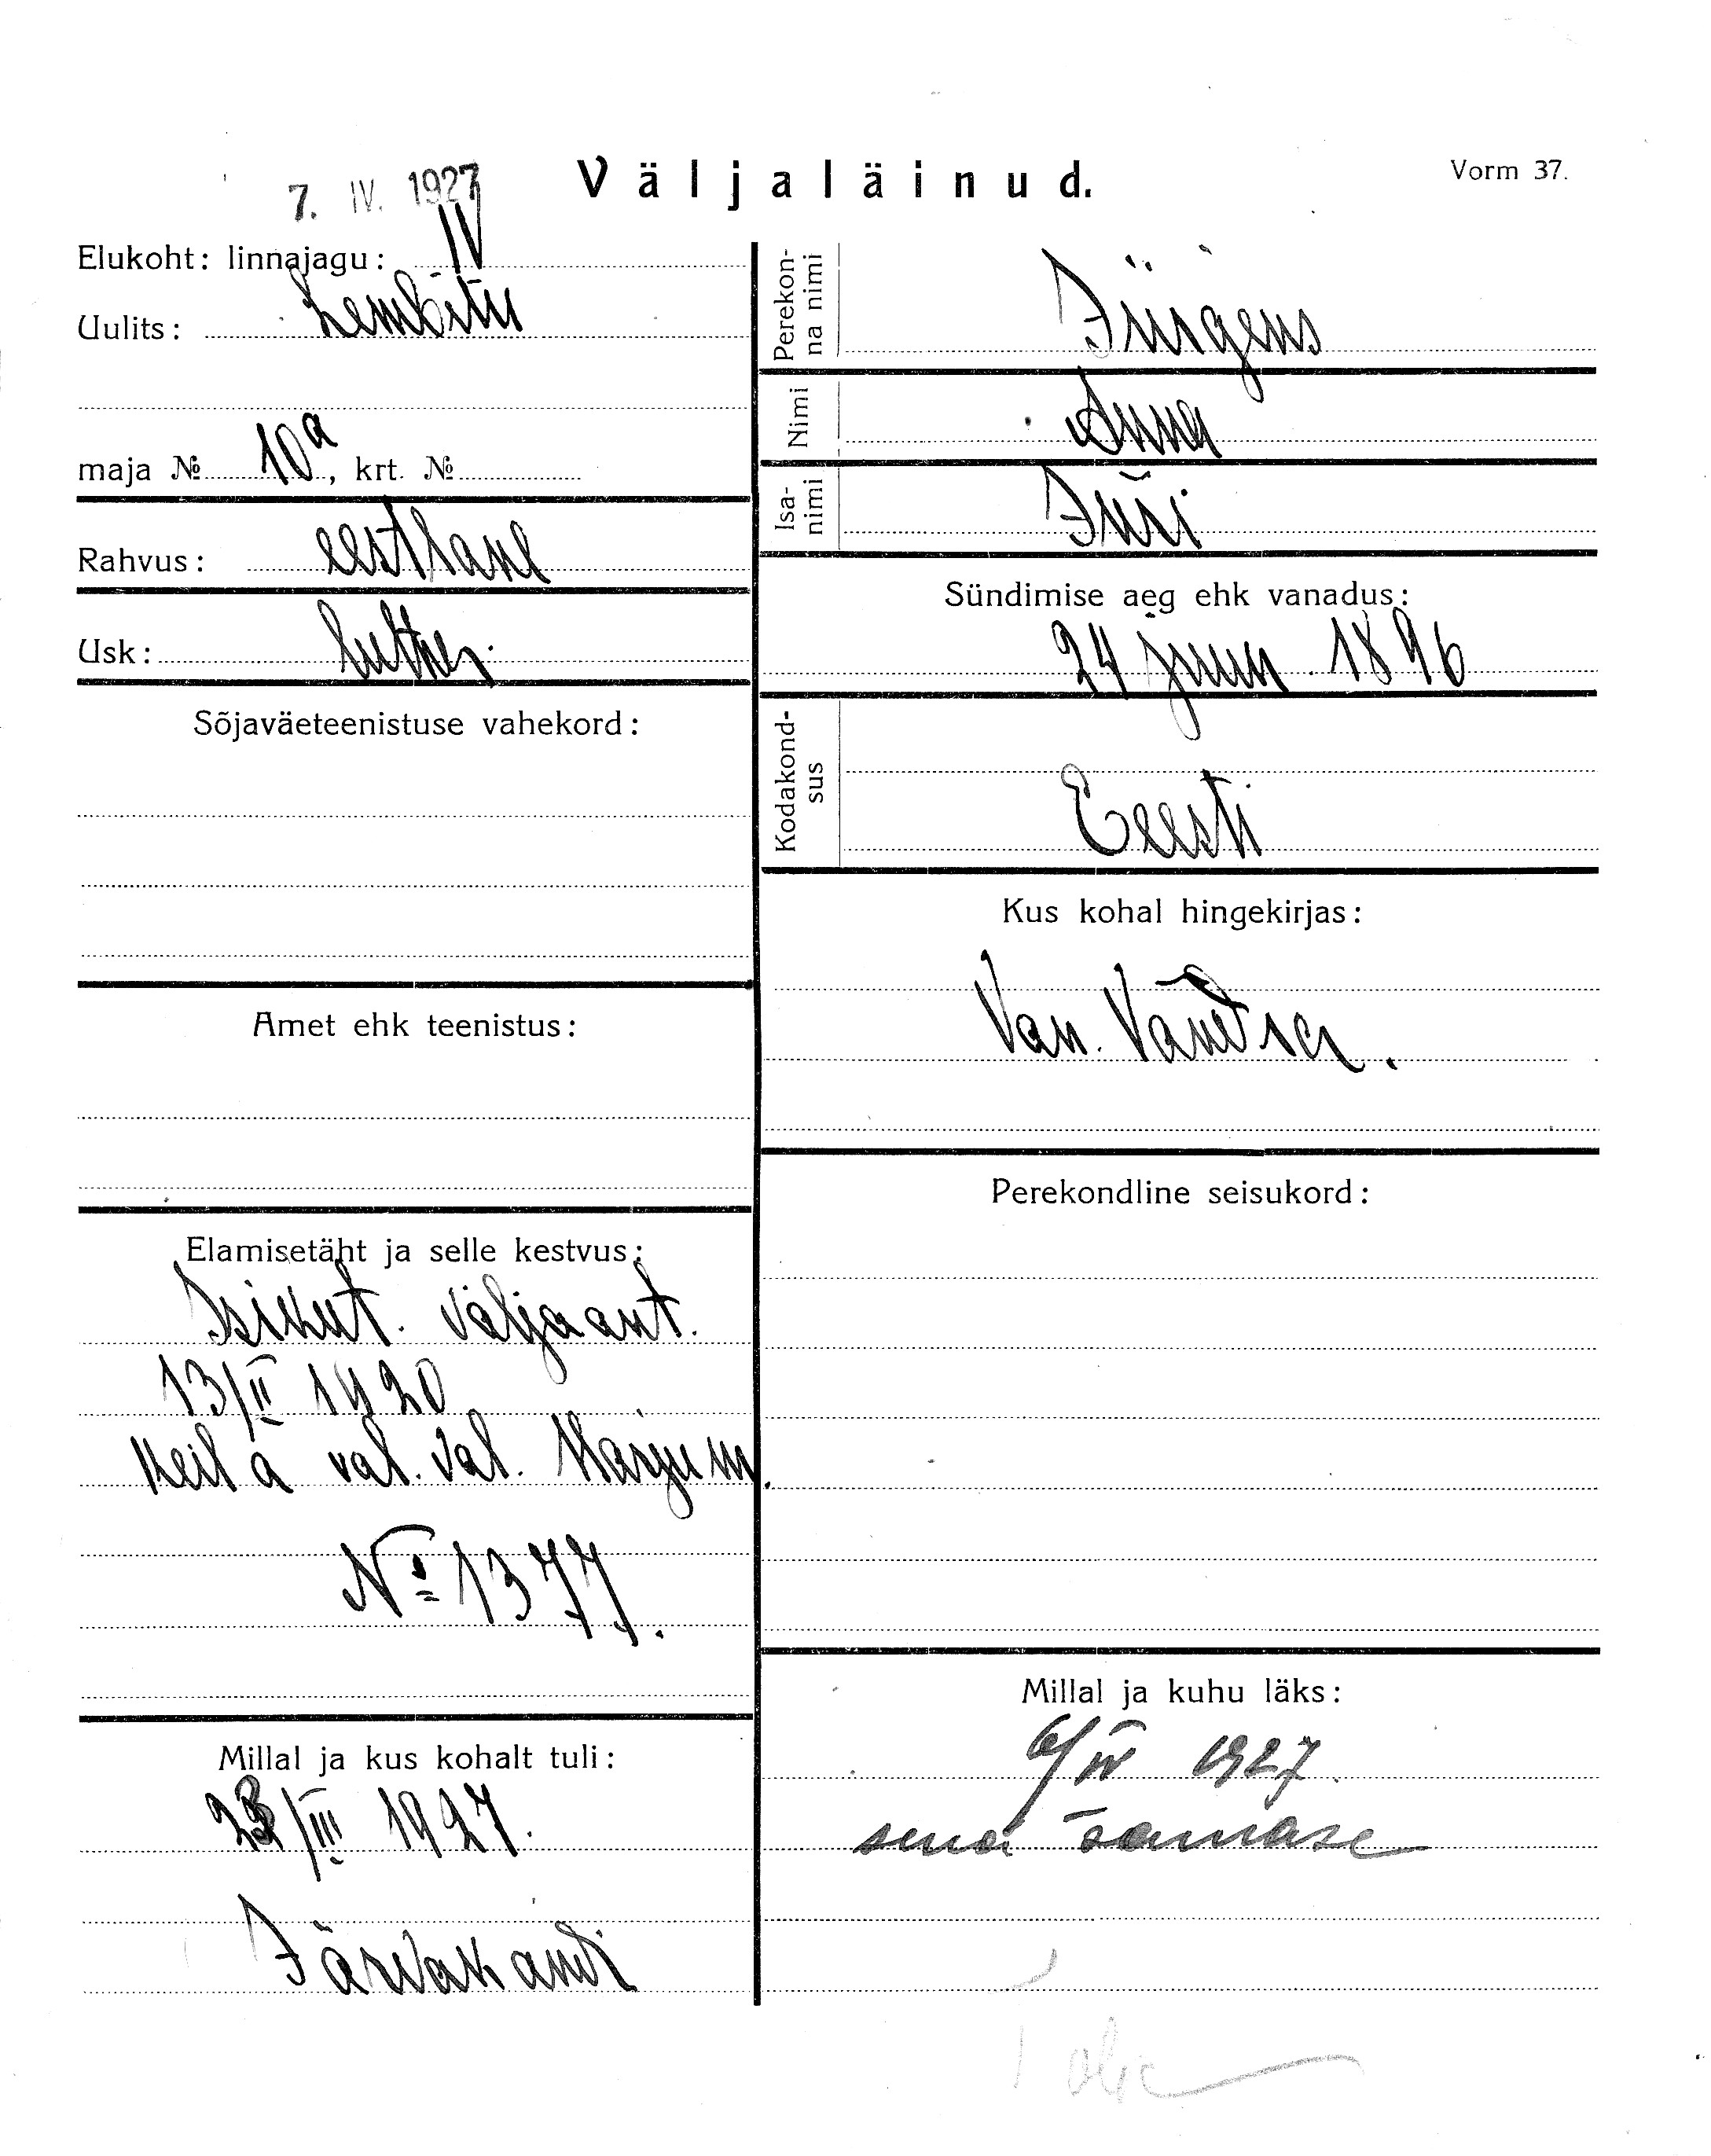 7. IV. 1927
Väljaläinud.
Vorm 37.
Elukoht: linnajagu: IV
Uulits: Lembitu
maja № 10a, krt. №
Rahvus: eestlane
Usk: luther.
Sõjaväeteenistuse vahekord:
Amet ehk teenistus:
Elamisetäht ja selle kestvus:
Isikut. väljaant.
13/II 1920
Keila val. val. Harjum.
№ 1377.
Millal ja kus kohalt tuli:
/III 1927.
Järvakandi
Perekon-
na nimi
Jürgens
Nimi
Anna
Isa-
nimi
Jüri
Sündimise aeg ehk vanadus:
24 juun 1896
Kodakond-
sus
Eesti
Kus kohal hingekirjas:
Van. Vändra.
Perekondline seisukord:
Millal ja kuhu läks:
6/IV 1927.
senna samase